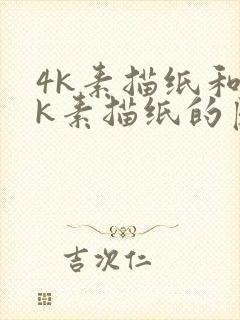 4K素描纸和
K素描纸的
吉次仁